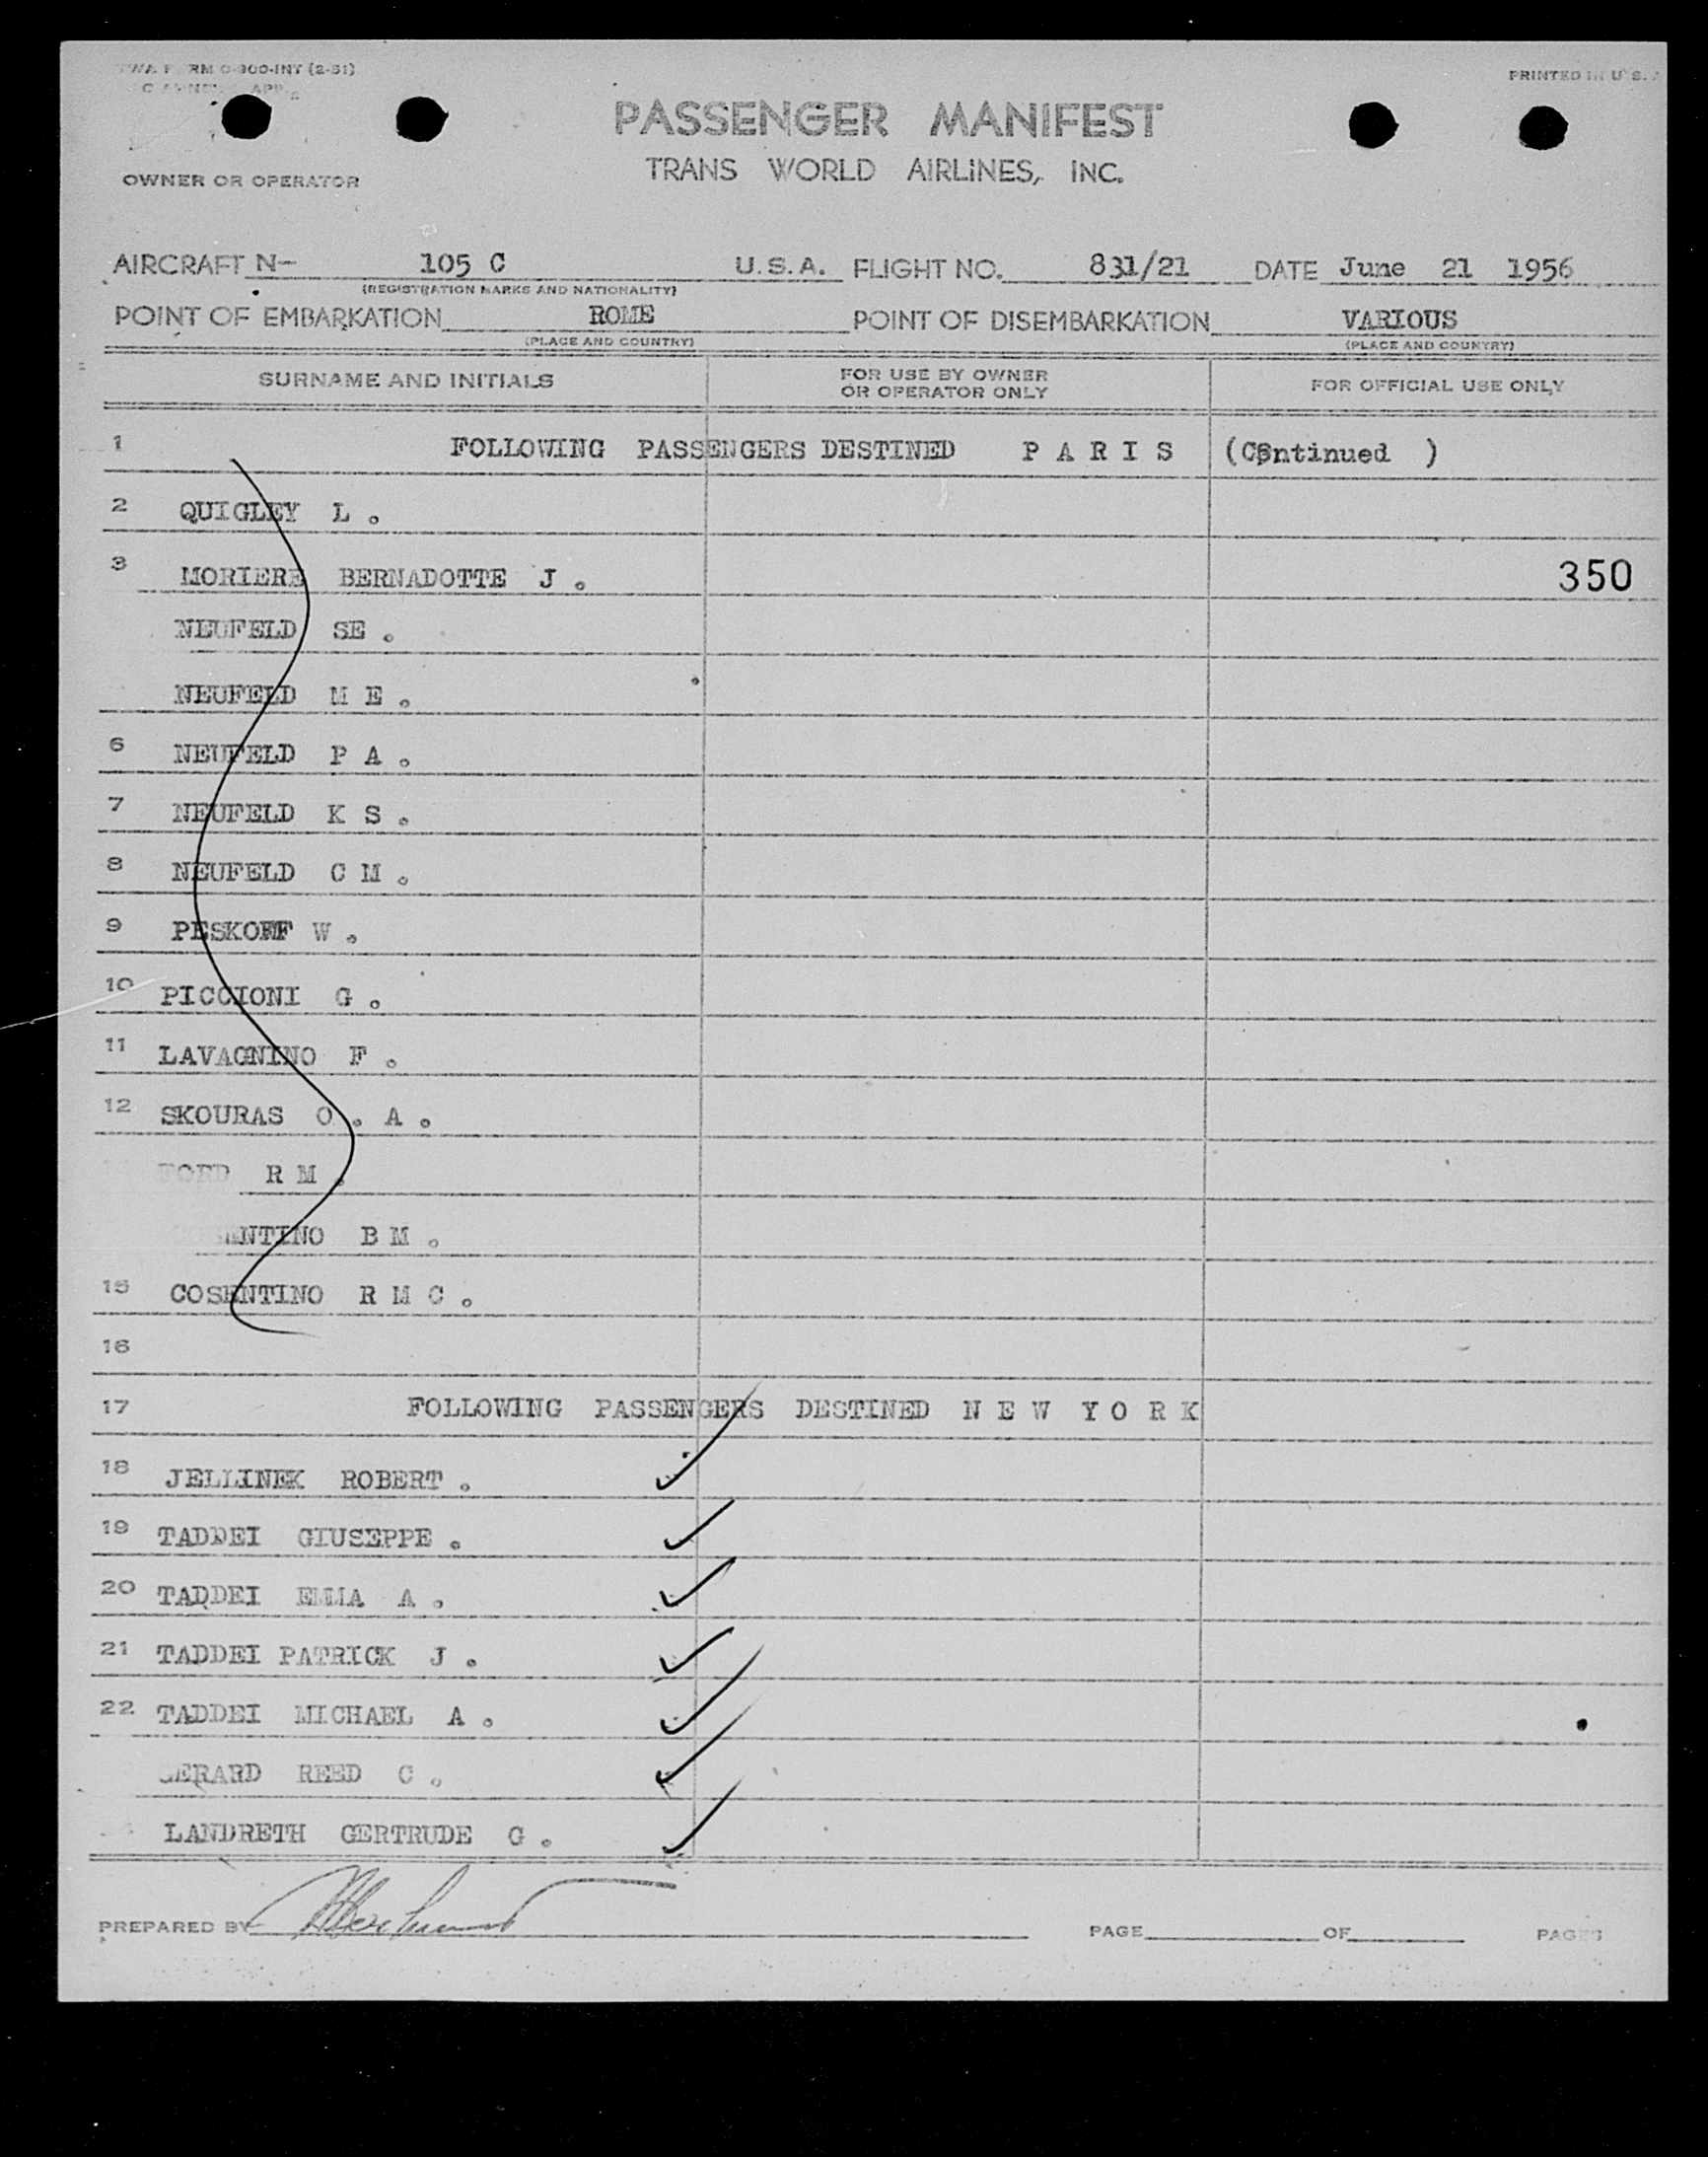 TWA FORM O-300-INT (2-51)
PRINTED IN U.S.A
PASSENGER MANIFEST
TRANS WORLD AIRLINES, INC.
OWNER OR OPERATOR
AIRCRAFT N- 105 C U.S.A. FLIGHT NO. 831/21 DATE June 21 1956
(REGISTRATION MARKS AND NATIONALITY)
POINT OF EMBARKATION ROME POINT OF DISEMBARKATION VARIOUS
(PLACE AND COUNTRY) (PLACE AND COUNTRY)
SURNAME AND INITIALS FOR USE BY OWNER OR OPERATOR ONLY FOR OFFICIAL USE ONLY
1 FOLLOWING PASSENGERS DESTINED P A R I S (Continued )
2 QUIGLEY L .
3 MORIERE BERNADOTTE J . 350
NEUFELD SE .
NEUFELD M E .
6 NEUFELD P A .
7 NEUFELD K S .
8 NEUFELD C M .
9 PESKOFF W .
10 PICCIONI G .
11 LAVAGNINO F .
12 SKOURAS O . A .
FORD R M .
COSENTINO B M .
15 COSENTINO R M C .
16
17 FOLLOWING PASSENGERS DESTINED N E W Y O R K
18 JELLINEK ROBERT .
19 TADDEI GIUSEPPE .
20 TADDEI A .
21 TADDEI PATRICK J .
22 TADDEI MICHAEL A .
GERARD REED C .
LANDRETH GERTRUDE G .
PREPARED BY PAGE OF PAGES